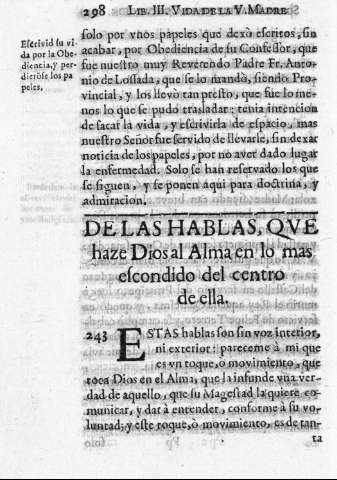 298 LIB. III. VIDA DE LA V. MADRE
Escrivió su vi-
da por la Obe-
diencia, y per-
dieróse los pa
peles.
solo por vnos papeles que dexò escritos, sin
acabar, por Obediencia de su Confessor, que
fue nuestro muy Reverendo Padre Fr. Anto-
nio de Lossada, que se lo mandò, siendo Pro-
vincial, y los llevò tan presto, que fue lo me-
nos lo que se pudo trasladar: tenia intencion
de sacar la vida, y escrivirla de espacio, mas
nuestro Señor fue servido de llevarse, sin dexar
noticia de los papeles, por no aver dado lugar
la enfermedad. Solo se han reservado los que
se siguen, y se ponen aqui para doctrina, y
admiracion.
DE LAS HABLAS, QVE
haze Dios al Alma en lo mas
escondido del centro
de ella.
243 ESTAS hablas son sin voz interior,
ni exterior: pareceme à mi que
es vn toque, ò movimiento, que
toca Dios en el Alma, que la infunde vna ver-
dad de aquello, que su Magestad la quiere co-
municar, y dar à entender, conforme à su vo-
luntad; y este toque, ò movimiento, es de tan-
ta